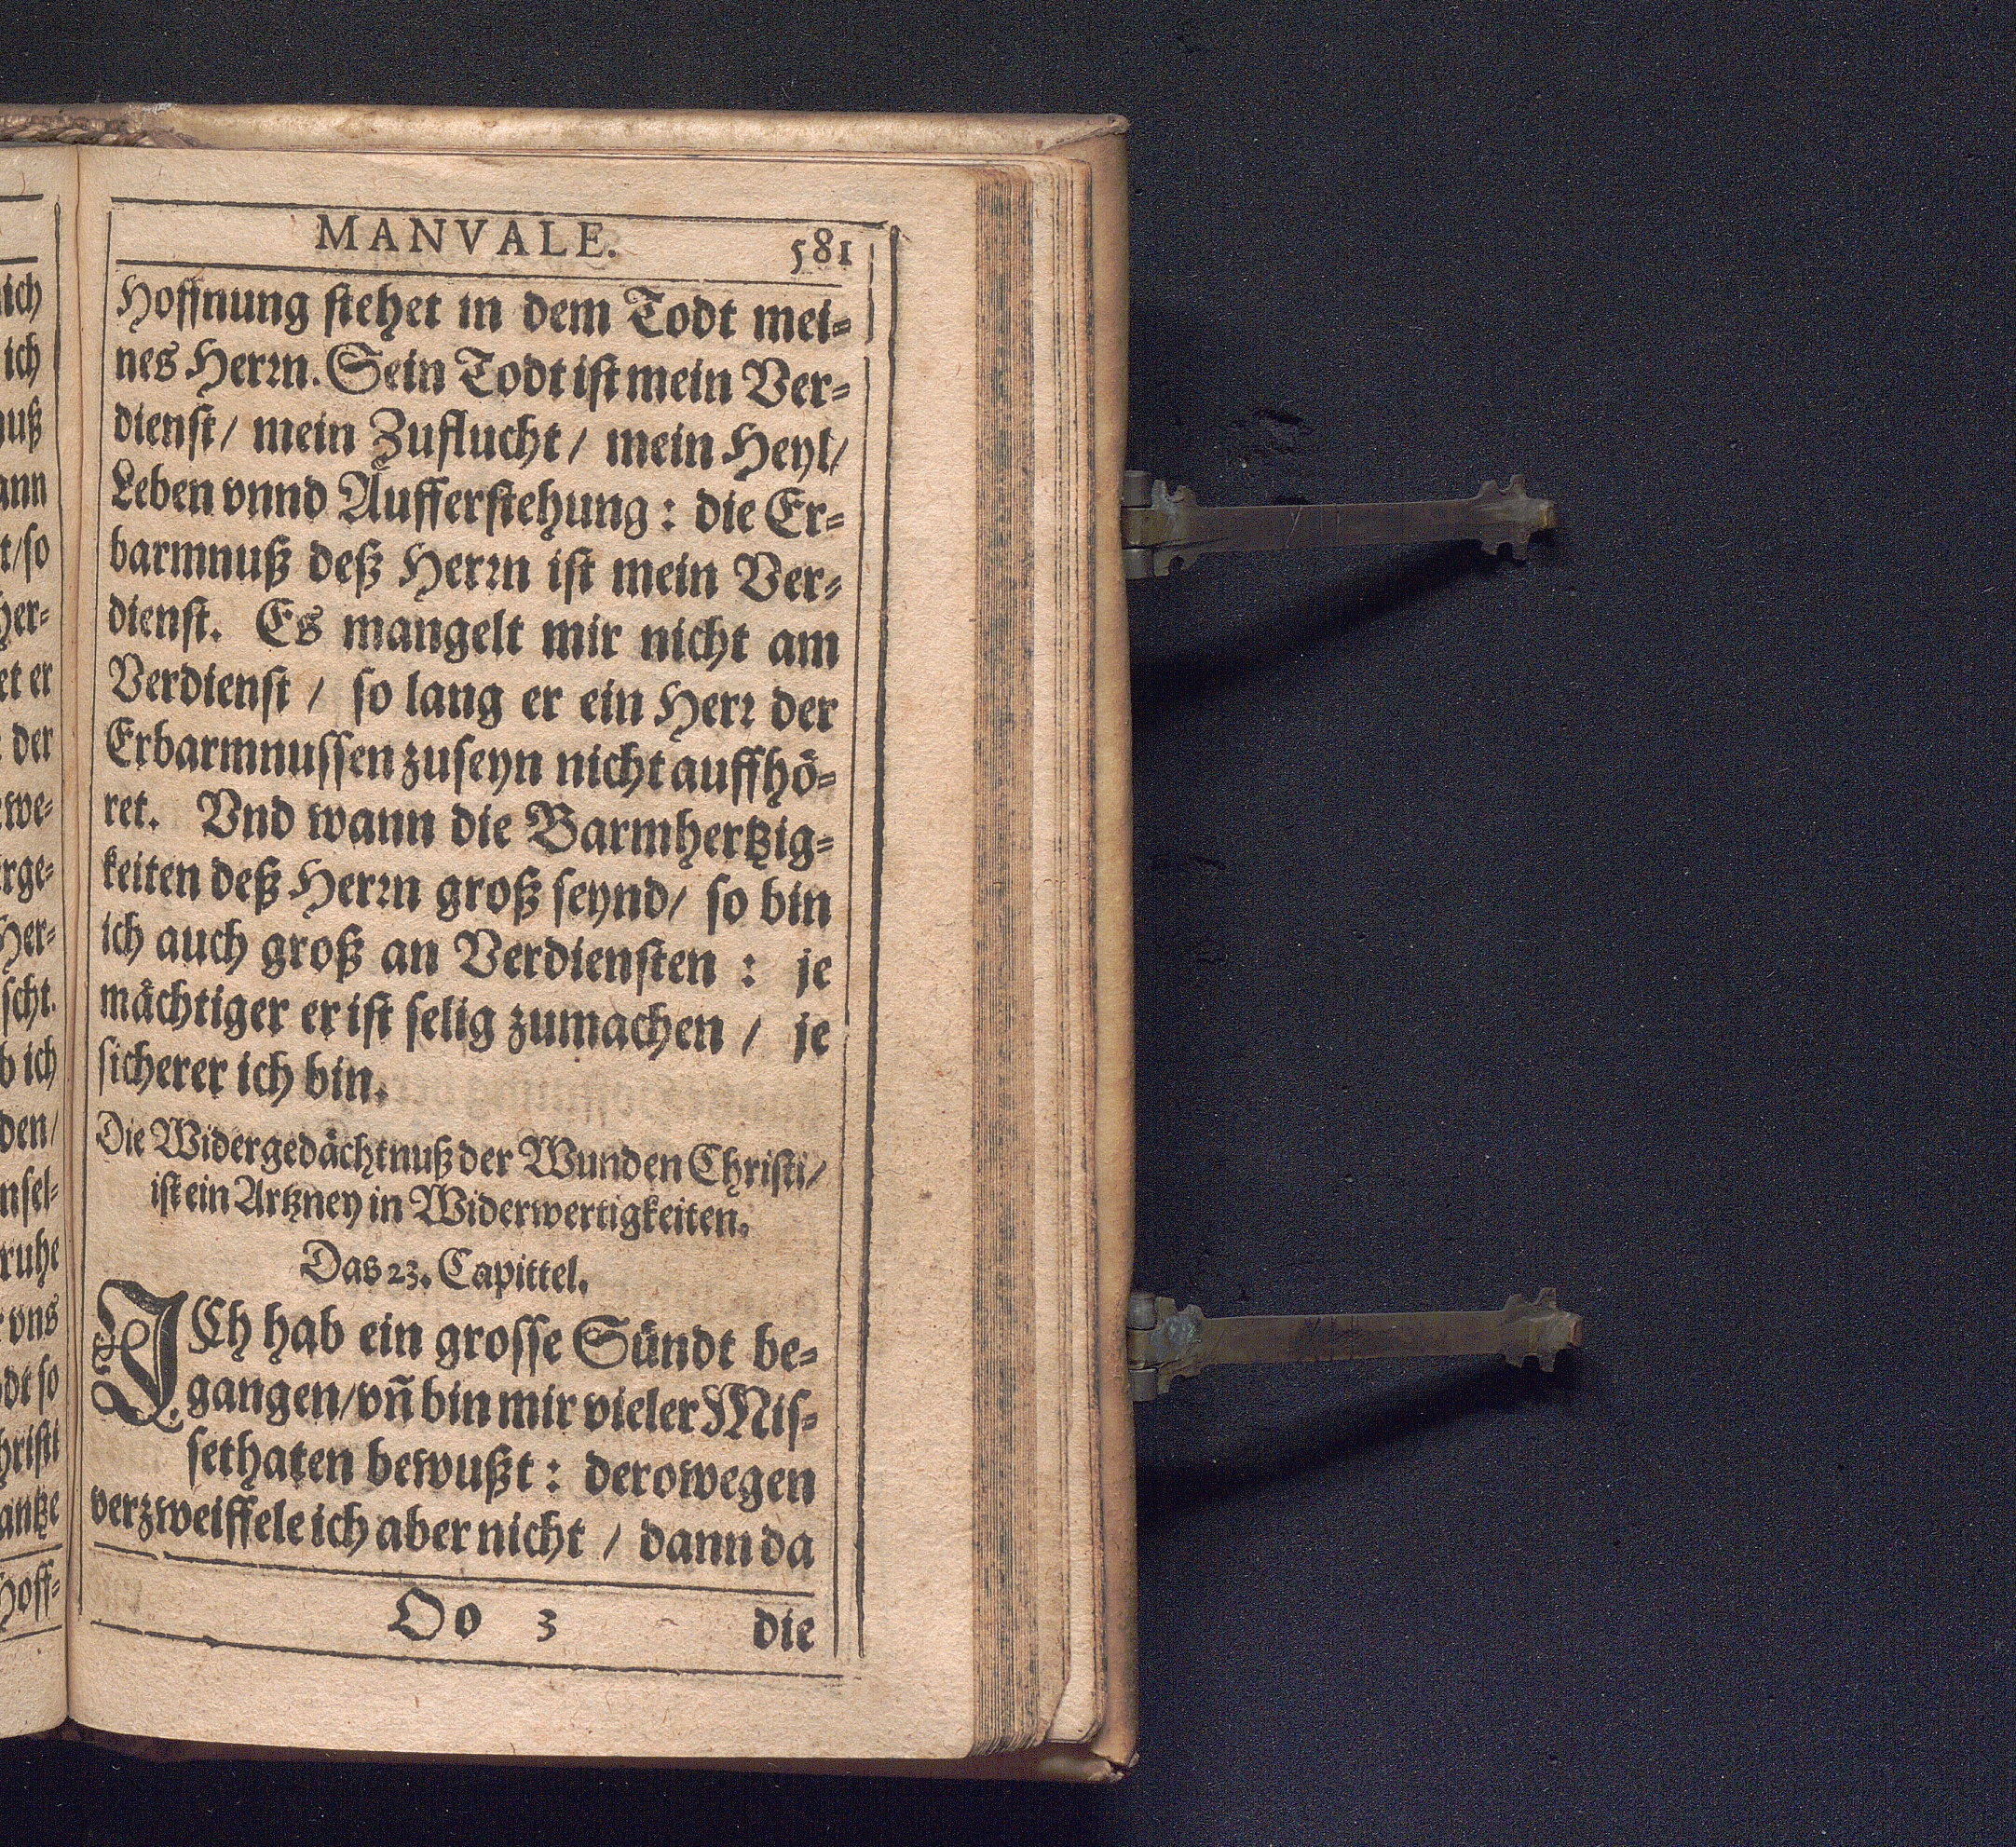 MANVALE. 581
Hoffnung stehet in dem Todt mei-
nes Herrn. Sein Todt ist mein Ver-
dienst / mein Zuflucht / mein Heyl/
Leben vnnd Aufferstehung : die Er-
barmnuß deß Herrn ist mein Ver-
dienst. Es mangelt mir nicht am
Verdienst / so lang er ein Herr der
Erbarmnussen zuseyn nicht auffhö-
ret. Vnd wann die Barmhertzig-
keiten deß Herrn groß seynd/ so bin
ich auch groß an Verdiensten : je
mächtiger er ist selig zumachen / je
sicherer ich bin.
Die Widergedächtnuß der Wunden Christi/
ist ein Artzney in Widerwertigkeiten.
Das 23. Capittel.
JCh hab ein grosse Sündt be-
gangen/vñ bin mir vieler Mis-
sethaten bewußt : derowegen
verzweiffele ich aber nicht / dann da
Oo 3 die